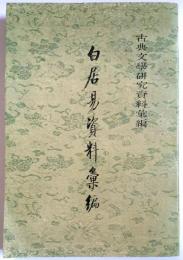 古典文學研究資料彙編
白居易資料彙編